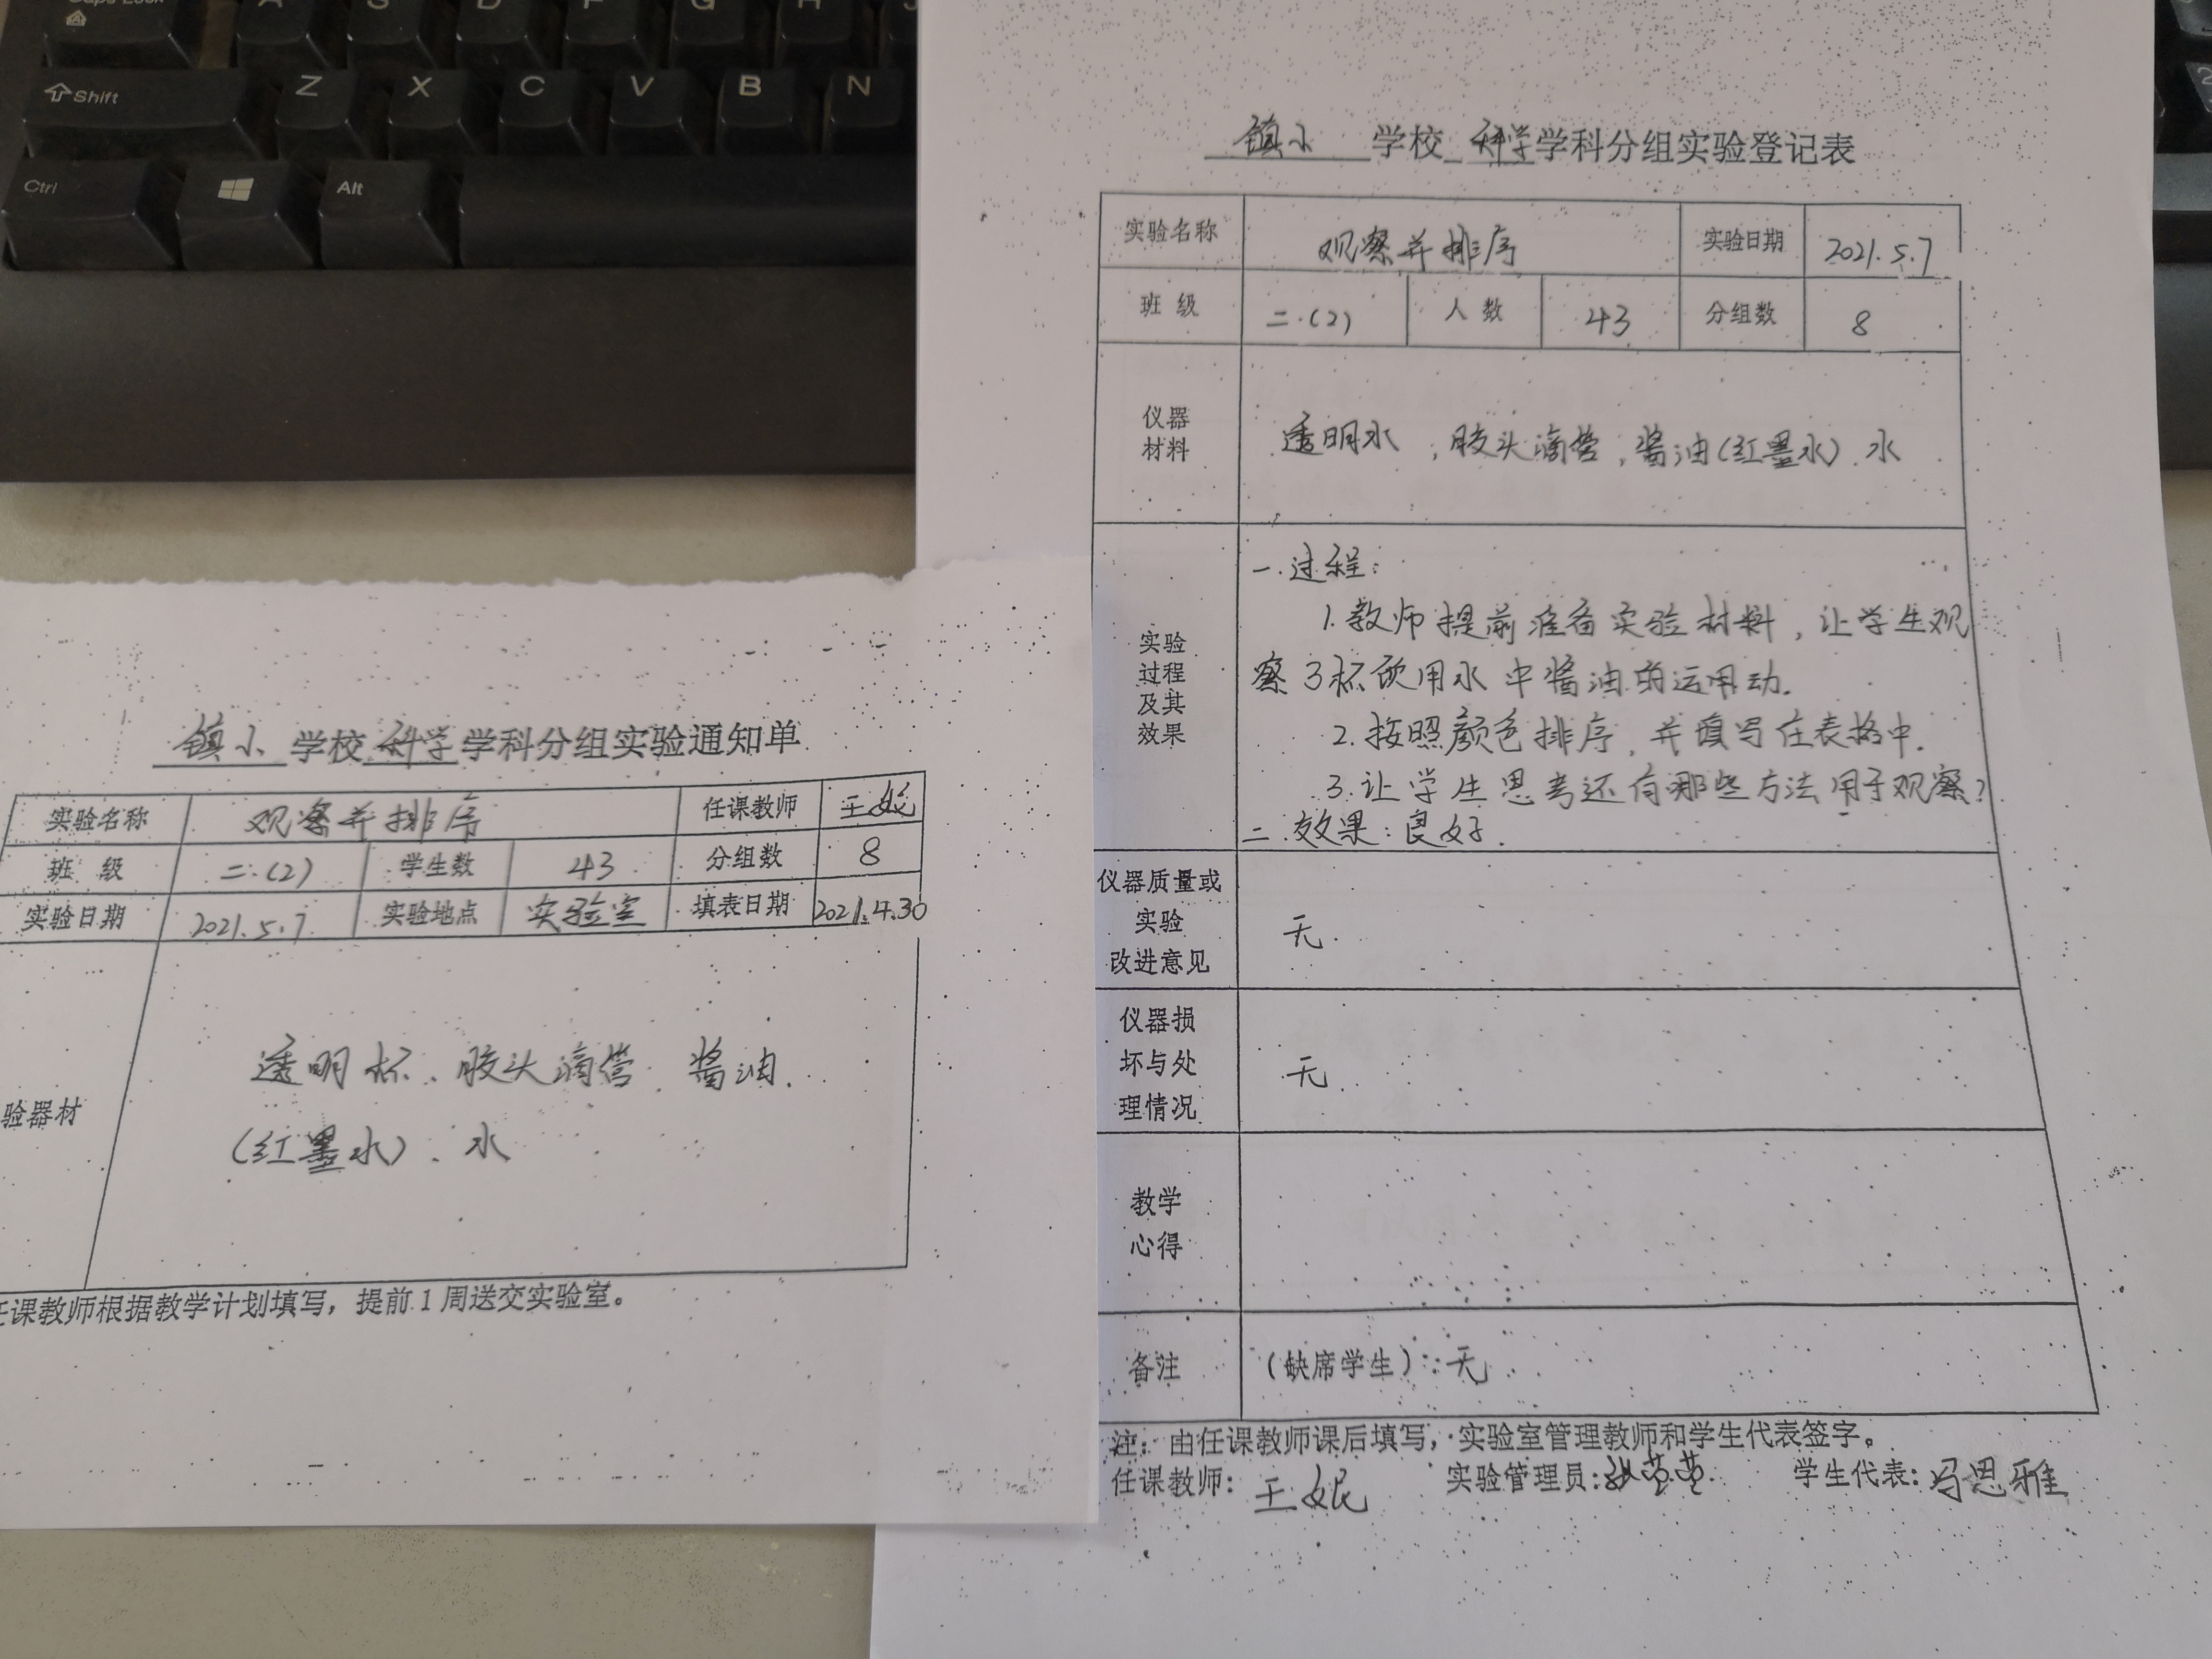 Caps Lock
A S D F G H J
Shift Z X C V B N
Ctrl Alt
2
镇小 学校 科学 学科分组实验登记表
实验名称 观察并排序 实验日期 2021.5.7
班 级 二.(2) 人 数 43 分组数 8
仪器
材料
透明水,胶头滴管,酱油(红墨水).水
实验
过程
及其
效果
一.过程:
1.教师提前准备实验材料,让学生观
察3杯饮用水中酱油的运用动.
2.按照颜色排序,并填写在表格中.
3.让学生思考还有哪些方法用于观察?
二.效果:良好.
仪器质量或
实验
改进意见
无.
仪器损
坏与处
理情况
无
教学
心得
备注 (缺席学生):无
注:由任课教师课后填写,实验室管理教师和学生代表签字。
任课教师: 王妮 实验管理员: 学生代表: 冯思雅
镇小 学校 科学 学科分组实验通知单
实验名称 观察并排序 任课教师 王妮
班 级 二.(2) 学生数 43 分组数 8
实验日期 2021.5.7. 实验地点 实验室 填表日期 2021.4.30
验器材
透明杯、胶头滴管、酱油.
(红墨水)、水
任课教师根据教学计划填写,提前1周送交实验室。